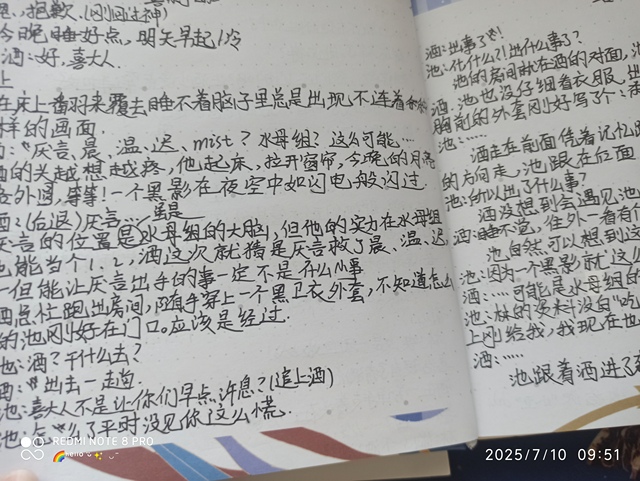 抱歉.(刚回过神)
今晚睡好点，明天早起1冷
酒:好，喜大人.
上
在床上翻来覆去睡不着脑子里总是出现不连着
样的画面.
"灰言、晨、温、迟、mist？水母组？这么可能…
酒的头越想越疼，他起床，拉开窗帘，今晚的月亮
外圆，等等！一个黑影在夜空中如闪电般闪过.
酒:(后退)灰言
灰言的位置是水母组的大脑，但他的实力在水母组
能当个1.2，酒这次就猜是灰言救了晨、温、迟
但能让灰言出手的事一定不是什么小事
酒急忙跑出房间，随手穿上一个黑卫衣外套，不知道怎么
的池刚好在门口。应该是经过.
池:酒？干什么去？
酒:出去一走.
池:喜大人不是让你们早点休息？(追上酒)
池:了平时没见你这么慌.
酒:出事了
池:什什么?!出什么事了?
池的房间就在酒的对面，
酒.池也没仔细看衣服，出
胸前的外套刚好写了个:
池:……
酒走在前面凭着记忆
的方向走，池跟在后面
池:所以出了什么事?
酒没想到会遇见池
酒:睡不觉，往外一看有
池自然可以想到这
池:因为一个黑影就这么
酒:….可能是水母组的
池:林的资料没自
上刚给我，我现在也
酒:……
池跟着酒进了
REDMI NOTE 8 PRO
hello
2025/7/10 09:51